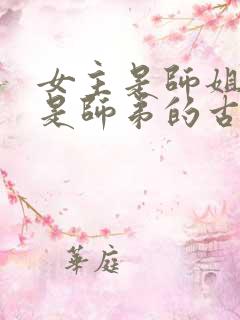 女主是師姐
是師弟的古
華庭